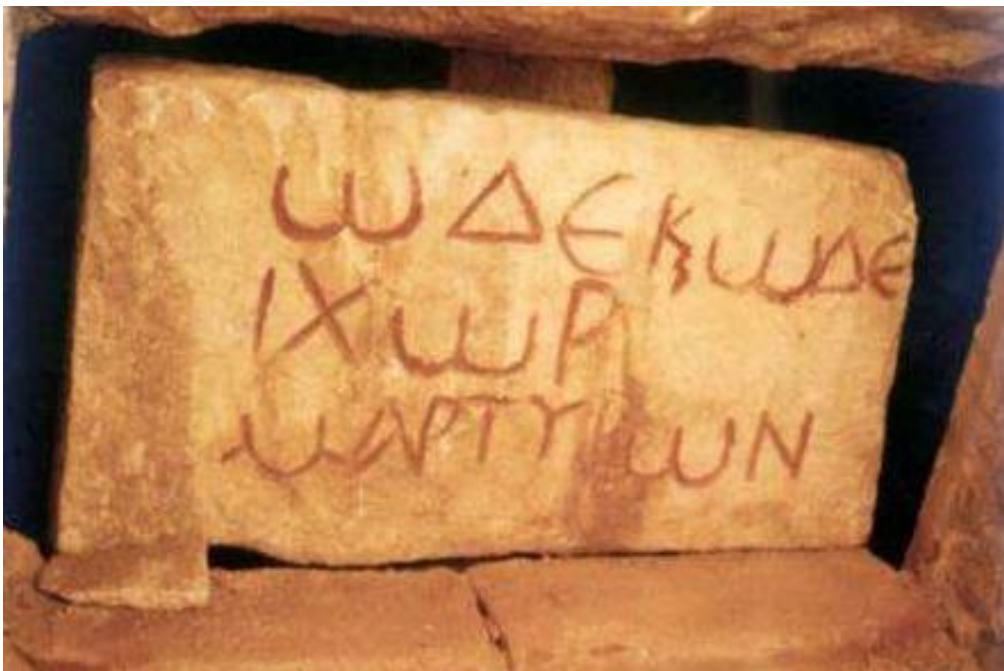 ΩΔΕ Κ ΩΔΕ
ΙΧΩΡ
ΜΑΡΤΥΡΩΝ